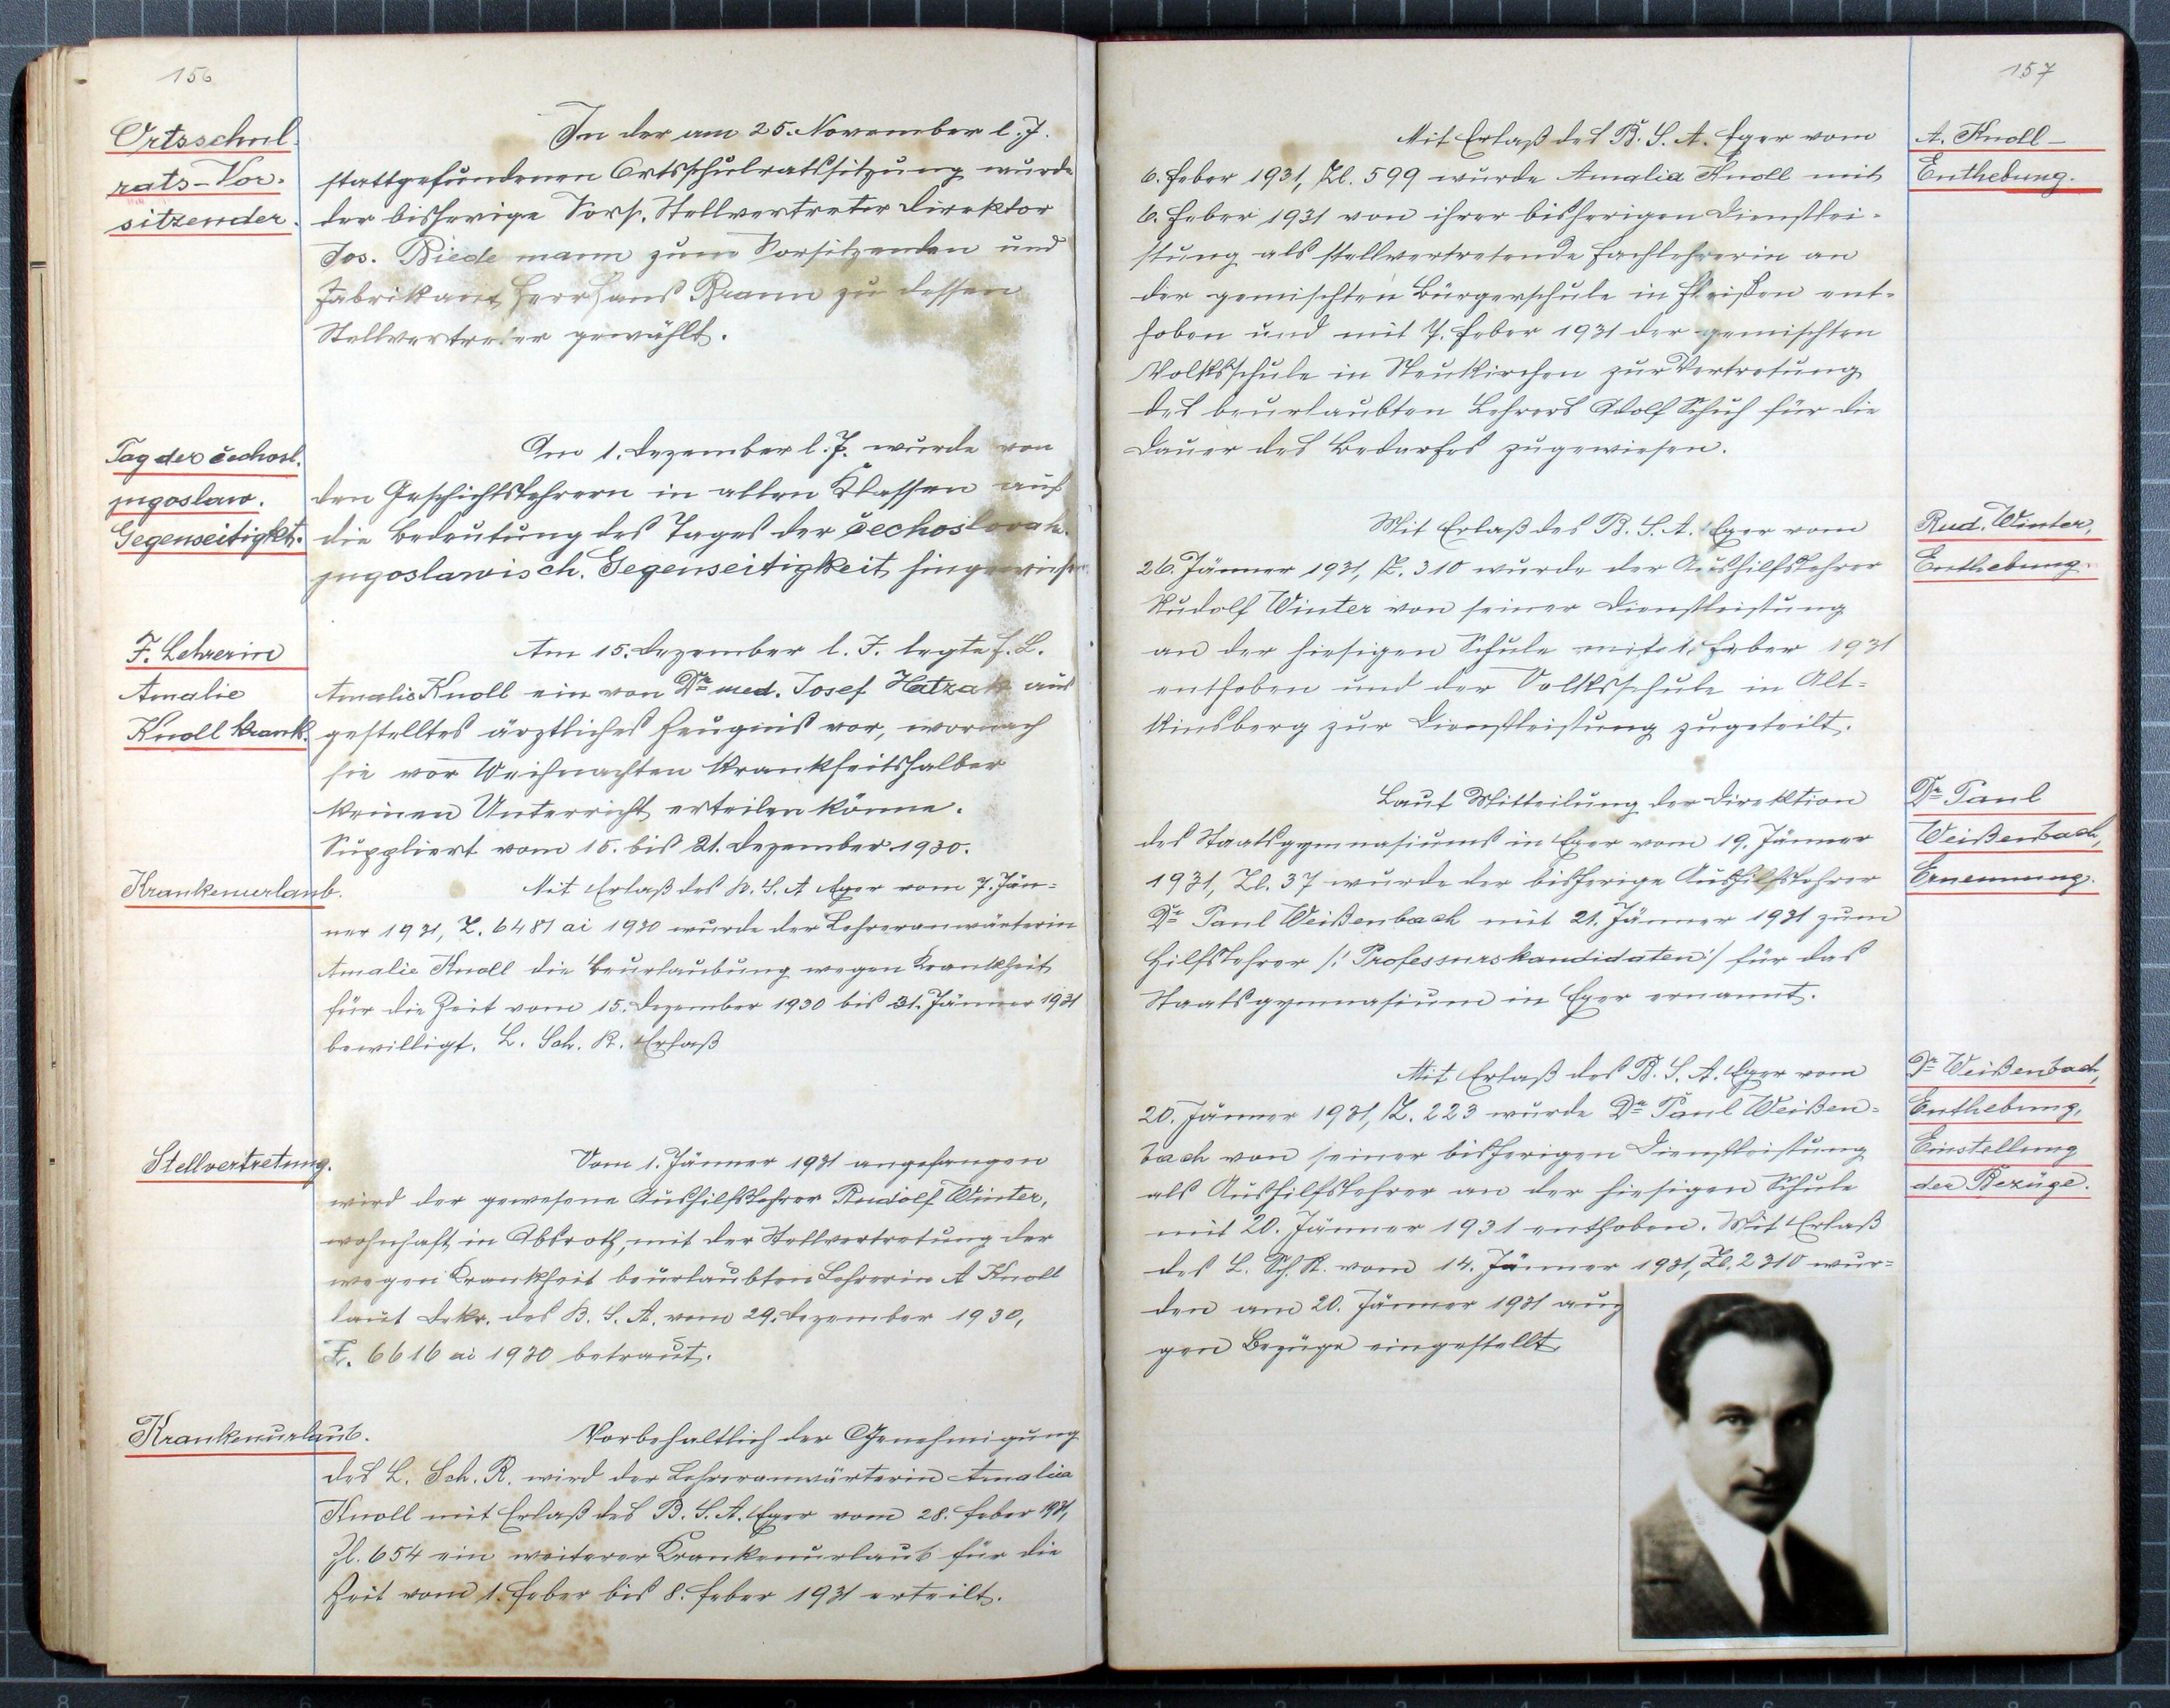 156
Ortsschul-
rats-Vor-
sitzender.
In der am 25. November l. J.
stattgefundenen Ortsschulratssitzung wurde
der bisherige Vors. Stellvertreter Direktor
Jos. Biedemann zum Vorsitzenden und
Fabrikant Herr Hans Braun zu dessen
Stellvertreter gewählt.
Tag der čechosl.
jugoslaw.
Gegenseitigkt.
Am 1. Dezember l. J. wurde von
den Geschichtslehrern in allen Klassen auf
die Bedeutung des Tages der čechoslovak.
jugoslawisch. Gegenseitigkeit hingewiesen
F. Lehrerin
Amalie
Knoll krank.
Am 15. Dezember l. J. legte F. L.
Amalie Knoll ein von Dr. med. Josef Hatzak aus
gestelltes ärztliches Zeugnis vor, wornach
sie vor Weihnachten krankheitshalber
keinen Unterricht erteilen könne.
Suppliert vom 15. bis 21. Dezember 1930.
Krankenurlaub.
Mit Erlaß des B. S. A. Eger vom 7. Jän-
ner 1931, Z. 6481 ai 1930 wurde der Lehreranwärterin
Amalie Knoll die Beurlaubung wegen Krankheit
für die Zeit vom 15. Dezember 1930 bis 31. Jänner 1931
bewilligt. L. Sch. R. Erlaß
Stellvertretung.
Vom 1. Jänner 1931 angefangen
wird der gewesene Aushilfslehrer Rudolf Winter,
wohnhaft in Absroth, mit der Stellvertretung der
wegen Krankheit beurlaubten Lehrerin A Knoll
laut Dekr. des B. S. A. vom 29. Dezember 1930,
Z. 6616 ai 1930 betraut.
Krankenurlaub.
Vorbehaltlich der Genehmigung
des L. Sch. R. wird der Lehreranwärterin Amalia
Knoll mit Erlaß des B. S. A. Eger vom 28. Feber 1931,
Zl. 654 ein weiterer Krankenurlaub für die
Zeit vom 1. Feber bis 8. Feber 1931 erteilt.
157
Mit Erlaß des B. S. A. Eger vom
6. Feber 1931, Zl. 599 wurde Amalia Knoll mit
6. Feber 1931 von ihrer bisherigen Dienstlei-
stung als stellvertretende Fachlehrerin an
der gemischten Bürgerschule in Fleißen ent-
hoben und mit 7. Feber 1931 der gemischten
Volksschule in Neukirchen zur Vertretung
des beurlaubten Lehrers Adolf Schuh für die
Dauer des Bedarfes zugewiesen.
A. Knoll-
Enthebung.
Mit Erlaß des B. S. A. Eger vom
26. Jänner 1931, Z. 310 wurde der Aushilfslehrer
Rudolf Winter von seiner Dienstleistung
an der hiesigen Schule mit 1. Feber 1931
enthoben und der Volksschule in Alt-
Kinsberg zur Dienstleistung zugeteilt.
Rud. Winter,
Enthebung.
Laut Mitteilung der Direktion
des Staatsgymnasiums in Eger vom 19. Jänner
1931, Zl. 37 wurde der bisherige Aushilfslehrer
Dr. Paul Weißenbach mit 21. Jänner 1931 zum
Hilfslehrer /: Professurskandidaten :/ für das
Staatsgymnasium in Eger ernannt.
Dr. Paul
Weißenbach,
Ernennung.
Mit Erlaß des B. S. A. Eger vom
20. Jänner 1931, Z. 223 wurde Dr. Paul Weißen-
bach von seiner bisherigen Dienstleistung
als Aushilfslehrer an der hiesigen Schule
mit 20. Jänner 1931 enthoben. Mit Erlaß
des L. Sch. R. vom 14. Jänner 1931, Zl. 2310 wur-
den am 20. Jänner 1931
gen Bezüge eingestellt.
Dr. Weißenbach,
Enthebung,
Einstellung
der Bezüge.